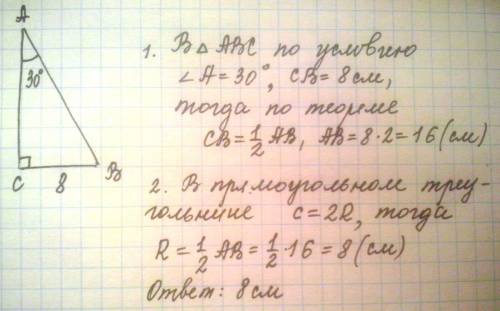 A
30°
C
8
B
1. В △ ABC по условию
∠A = 30°, CB = 8 см,
тогда по теореме
CB = 1/2 AB, AB = 8·2 = 16 (см)
2. В прямоугольном треу-
гольнике c = 2R, тогда
R = 1/2 AB = 1/2 · 16 = 8 (см)
Ответ: 8 см